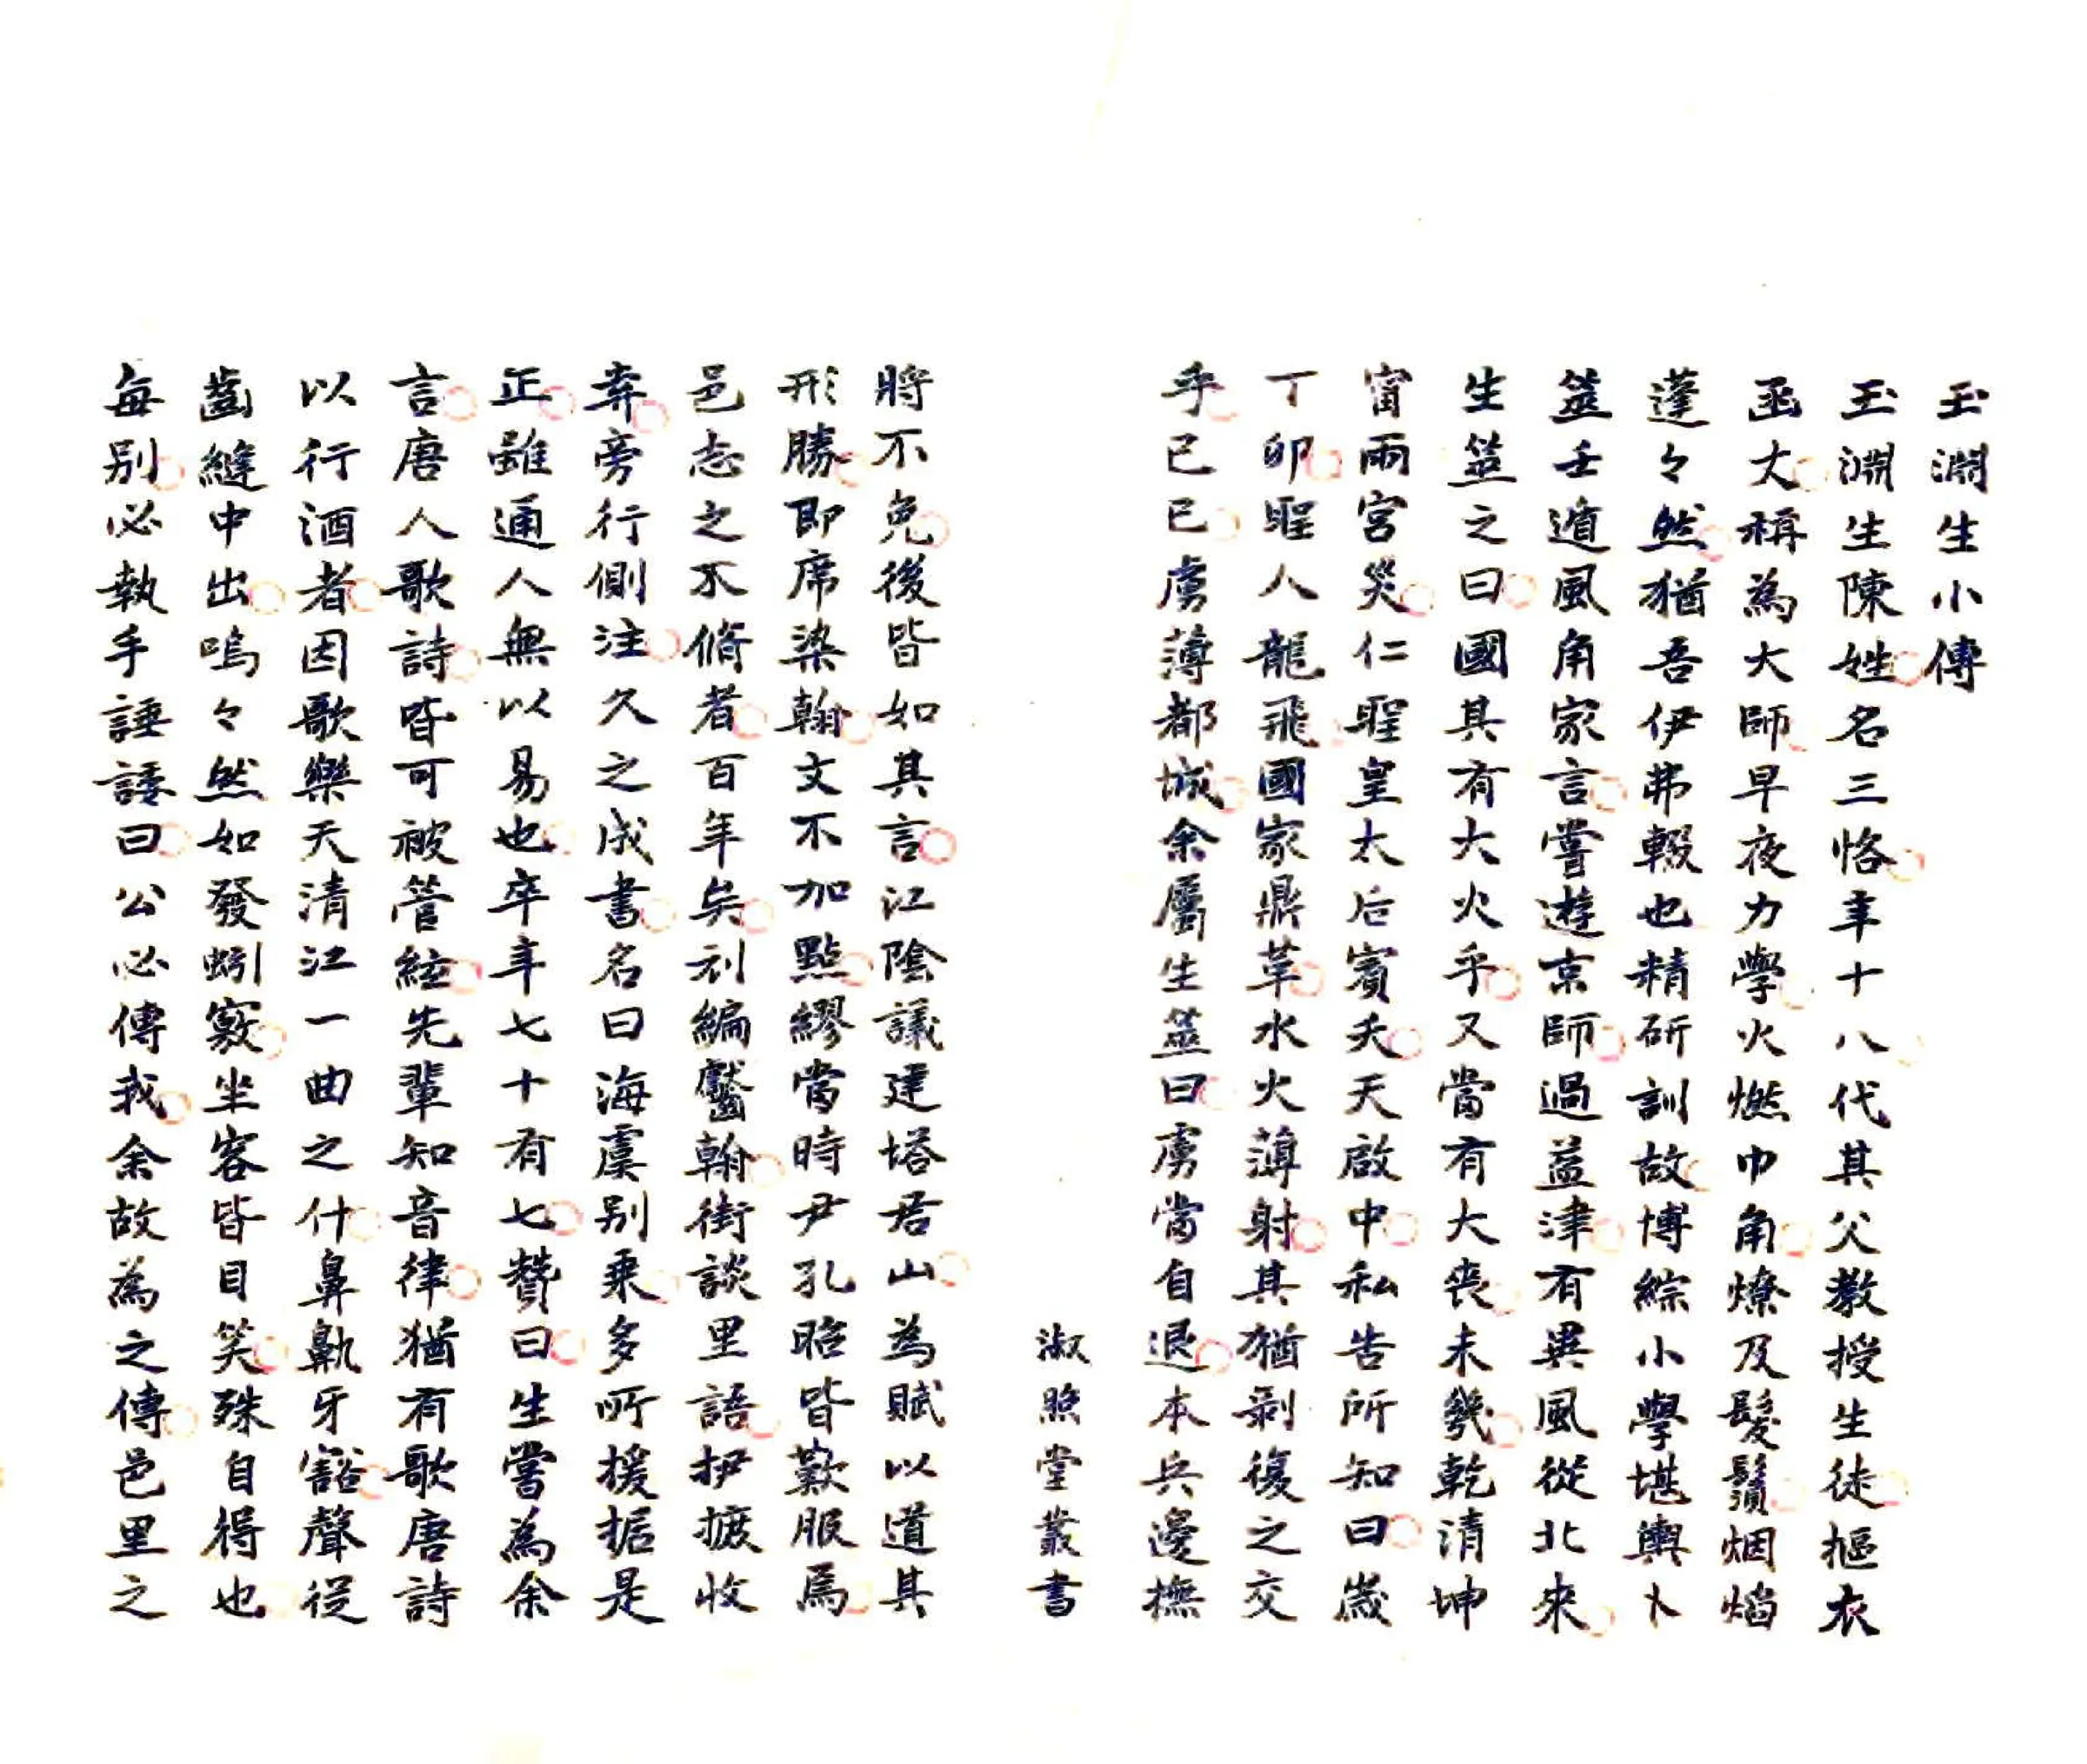 玉淵生小傳
玉淵生陳姓名三恪年十八代其父教授生徒摳衣
函丈稱為大師早夜力學火燃巾角燎及髮鬚烟焰
蓬々然猶吾伊弗輟也精研訓故博綜小學堪輿卜
筮壬遁風角家言嘗遊京師過益津有異風從北來
生筮之曰國其有大火乎又當有大喪未幾乾清坤
甯兩宮災仁聖皇太后賓天天啟中私告所知曰歲
丁卯聖人龍飛國家鼎革水火薄射其猶剝復之交
乎己巳虜薄都城余屬生筮曰虜當自退本兵邊撫
淑照堂叢書
將不免後皆如其言江陰議建塔君山為賦以道其
形勝即席染翰文不加點繆當時尹孔昭皆歎服焉
邑志之不脩者百年矣刓編齾翰街談里語捃摭收
弆旁行側注久之成書名曰海虞别乘多所援据是
正雖通人無以易也卒年七十有七贊曰生嘗為余
言唐人歌詩皆可被管絃先輩知音律猶有歌唐詩
以行酒者因歌樂天清江一曲之什鼻鼽牙豁聲從
齒縫中出嗚々然如發蚓竅坐客皆目笑殊自得也
每别必執手諈諉曰公必傳我余故為之傳邑里之